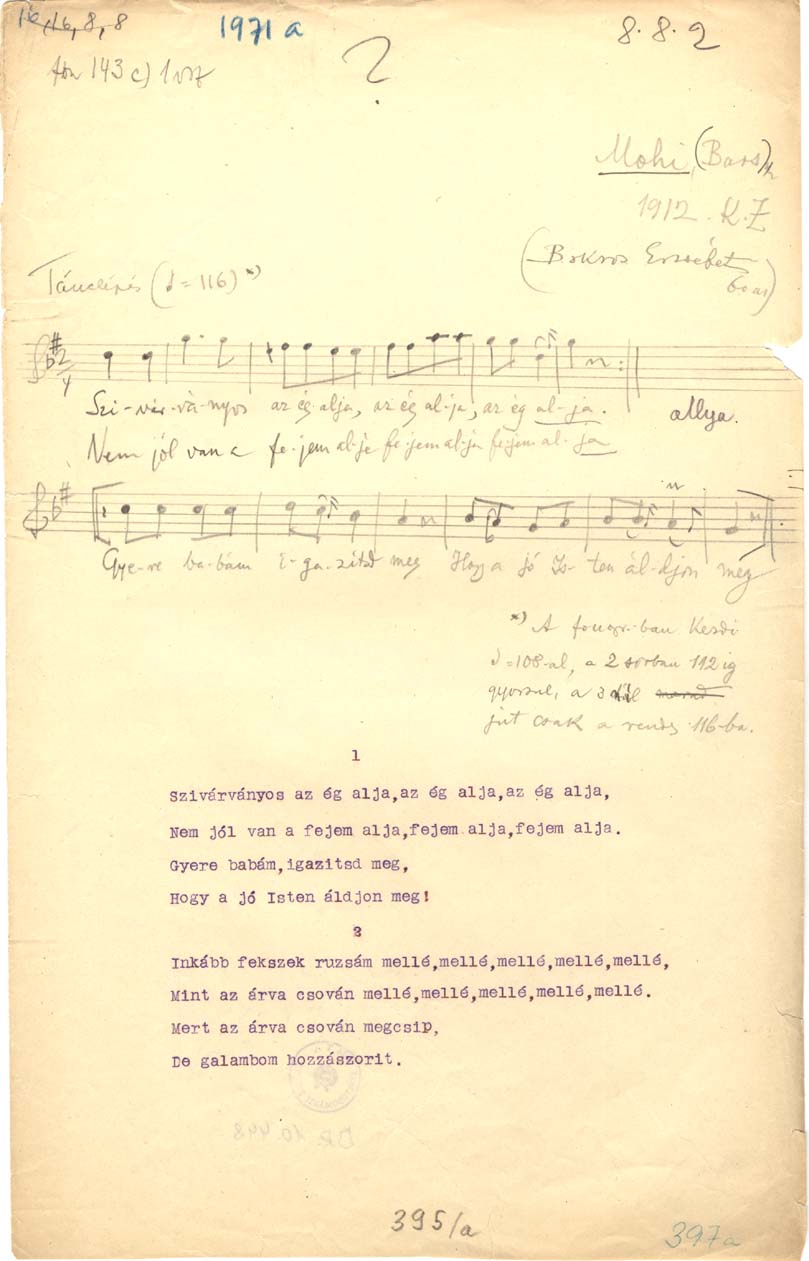 16, 16, 8, 8
1971 a
?
8.8.2
fon 143 c) 1 vsz
Mohi, (Bars)
1912. K.Z
(Bokros Erzsébet
60 as)
Tánclépés ( = 116) *)
2/4
Szi-vár-vá-nyos az ég alja, az ég al-ja, az ég al-ja.
allya.
Nem jól van a fe-jem al-je fe-jem al-ja fe-jem al-ja
Gye-re ba-bám i-ga-zitsd meg Hogy a jó Is-ten ál-djon meg
*) A fonogr-ban kezdi
=108-al, a 2 sorban 112 ig
gyorsul, a 3 tól marad
jut csak a rendes 116-ba.
1
Szivárványos az ég alja,az ég alja,az ég alja,
Nem jól van a fejem alja,fejem alja,fejem alja.
Gyere babám,igazitsd meg,
Hogy a jó Isten áldjon meg!
2
Inkább fekszek ruzsám mellé,mellé,mellé,mellé,mellé,
Mint az árva csován mellé,mellé,mellé,mellé,mellé.
Mert az árva csován megcsip,
De galambom hozzászorit.
BR 10.448
395/a
397a